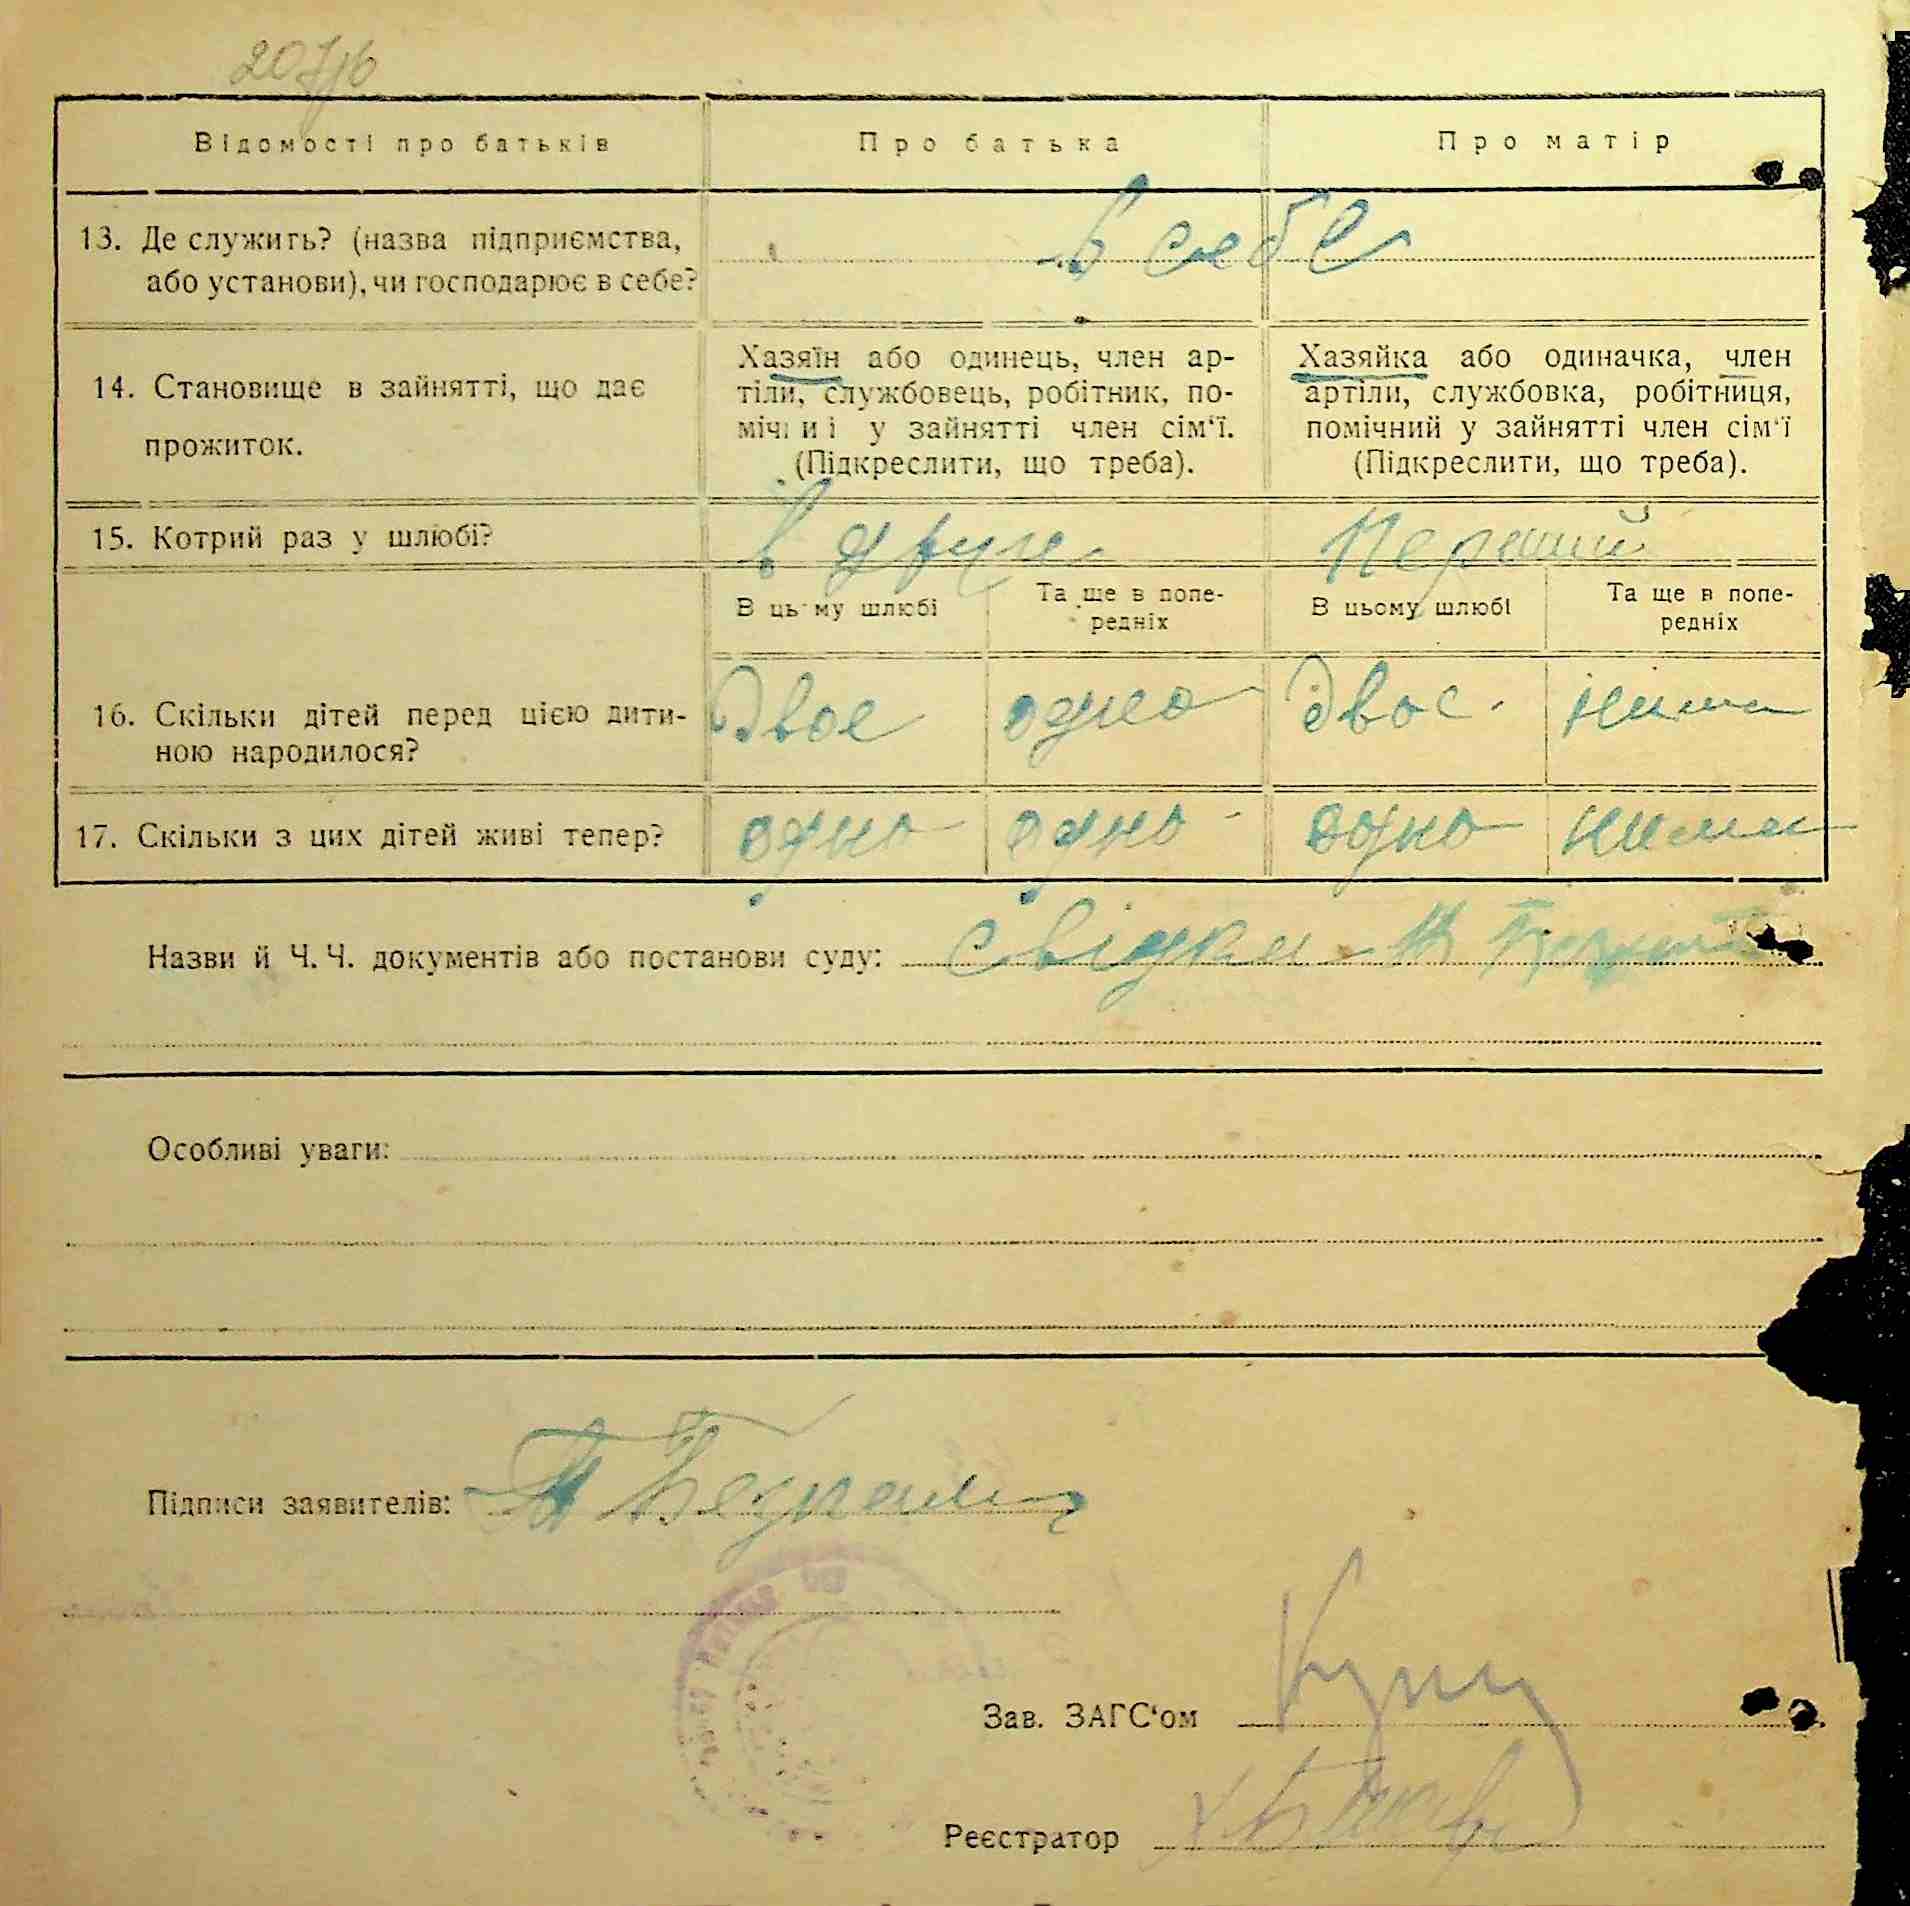 207/б
Відомості про батьків
Про батька
Про матір
13. Де служить? (назва підприємства,
або установи), чи господарює в себе?
в себе
14. Становище в зайнятті, що дає
прожиток.
Хазяїн або одинець, член ар-
тіли, службовець, робітник, по-
мічний у зайнятті член сім‘ї.
(Підкреслити, що треба).
Хазяйка або одиначка, член
артіли, службовка, робітниця,
помічний у зайнятті член сім‘ї
(Підкреслити, що треба).
15. Котрий раз у шлюбі?
в друге
Перший
В цьому шлюбі
Та ще в попе-
редніх
В цьому шлюбі
Та ще в попе-
редніх
16. Скільки дітей перед цією дити-
ною народилося?
двое
одно
двое
нима
17. Скільки з цих дітей живі тепер?
одно
одно
одно
нима
Назви й Ч. Ч. документів або постанови суду:
свідки
Особливі уваги:
Підписи заявителів:
Зав. ЗАГС‘ом
Реєстратор